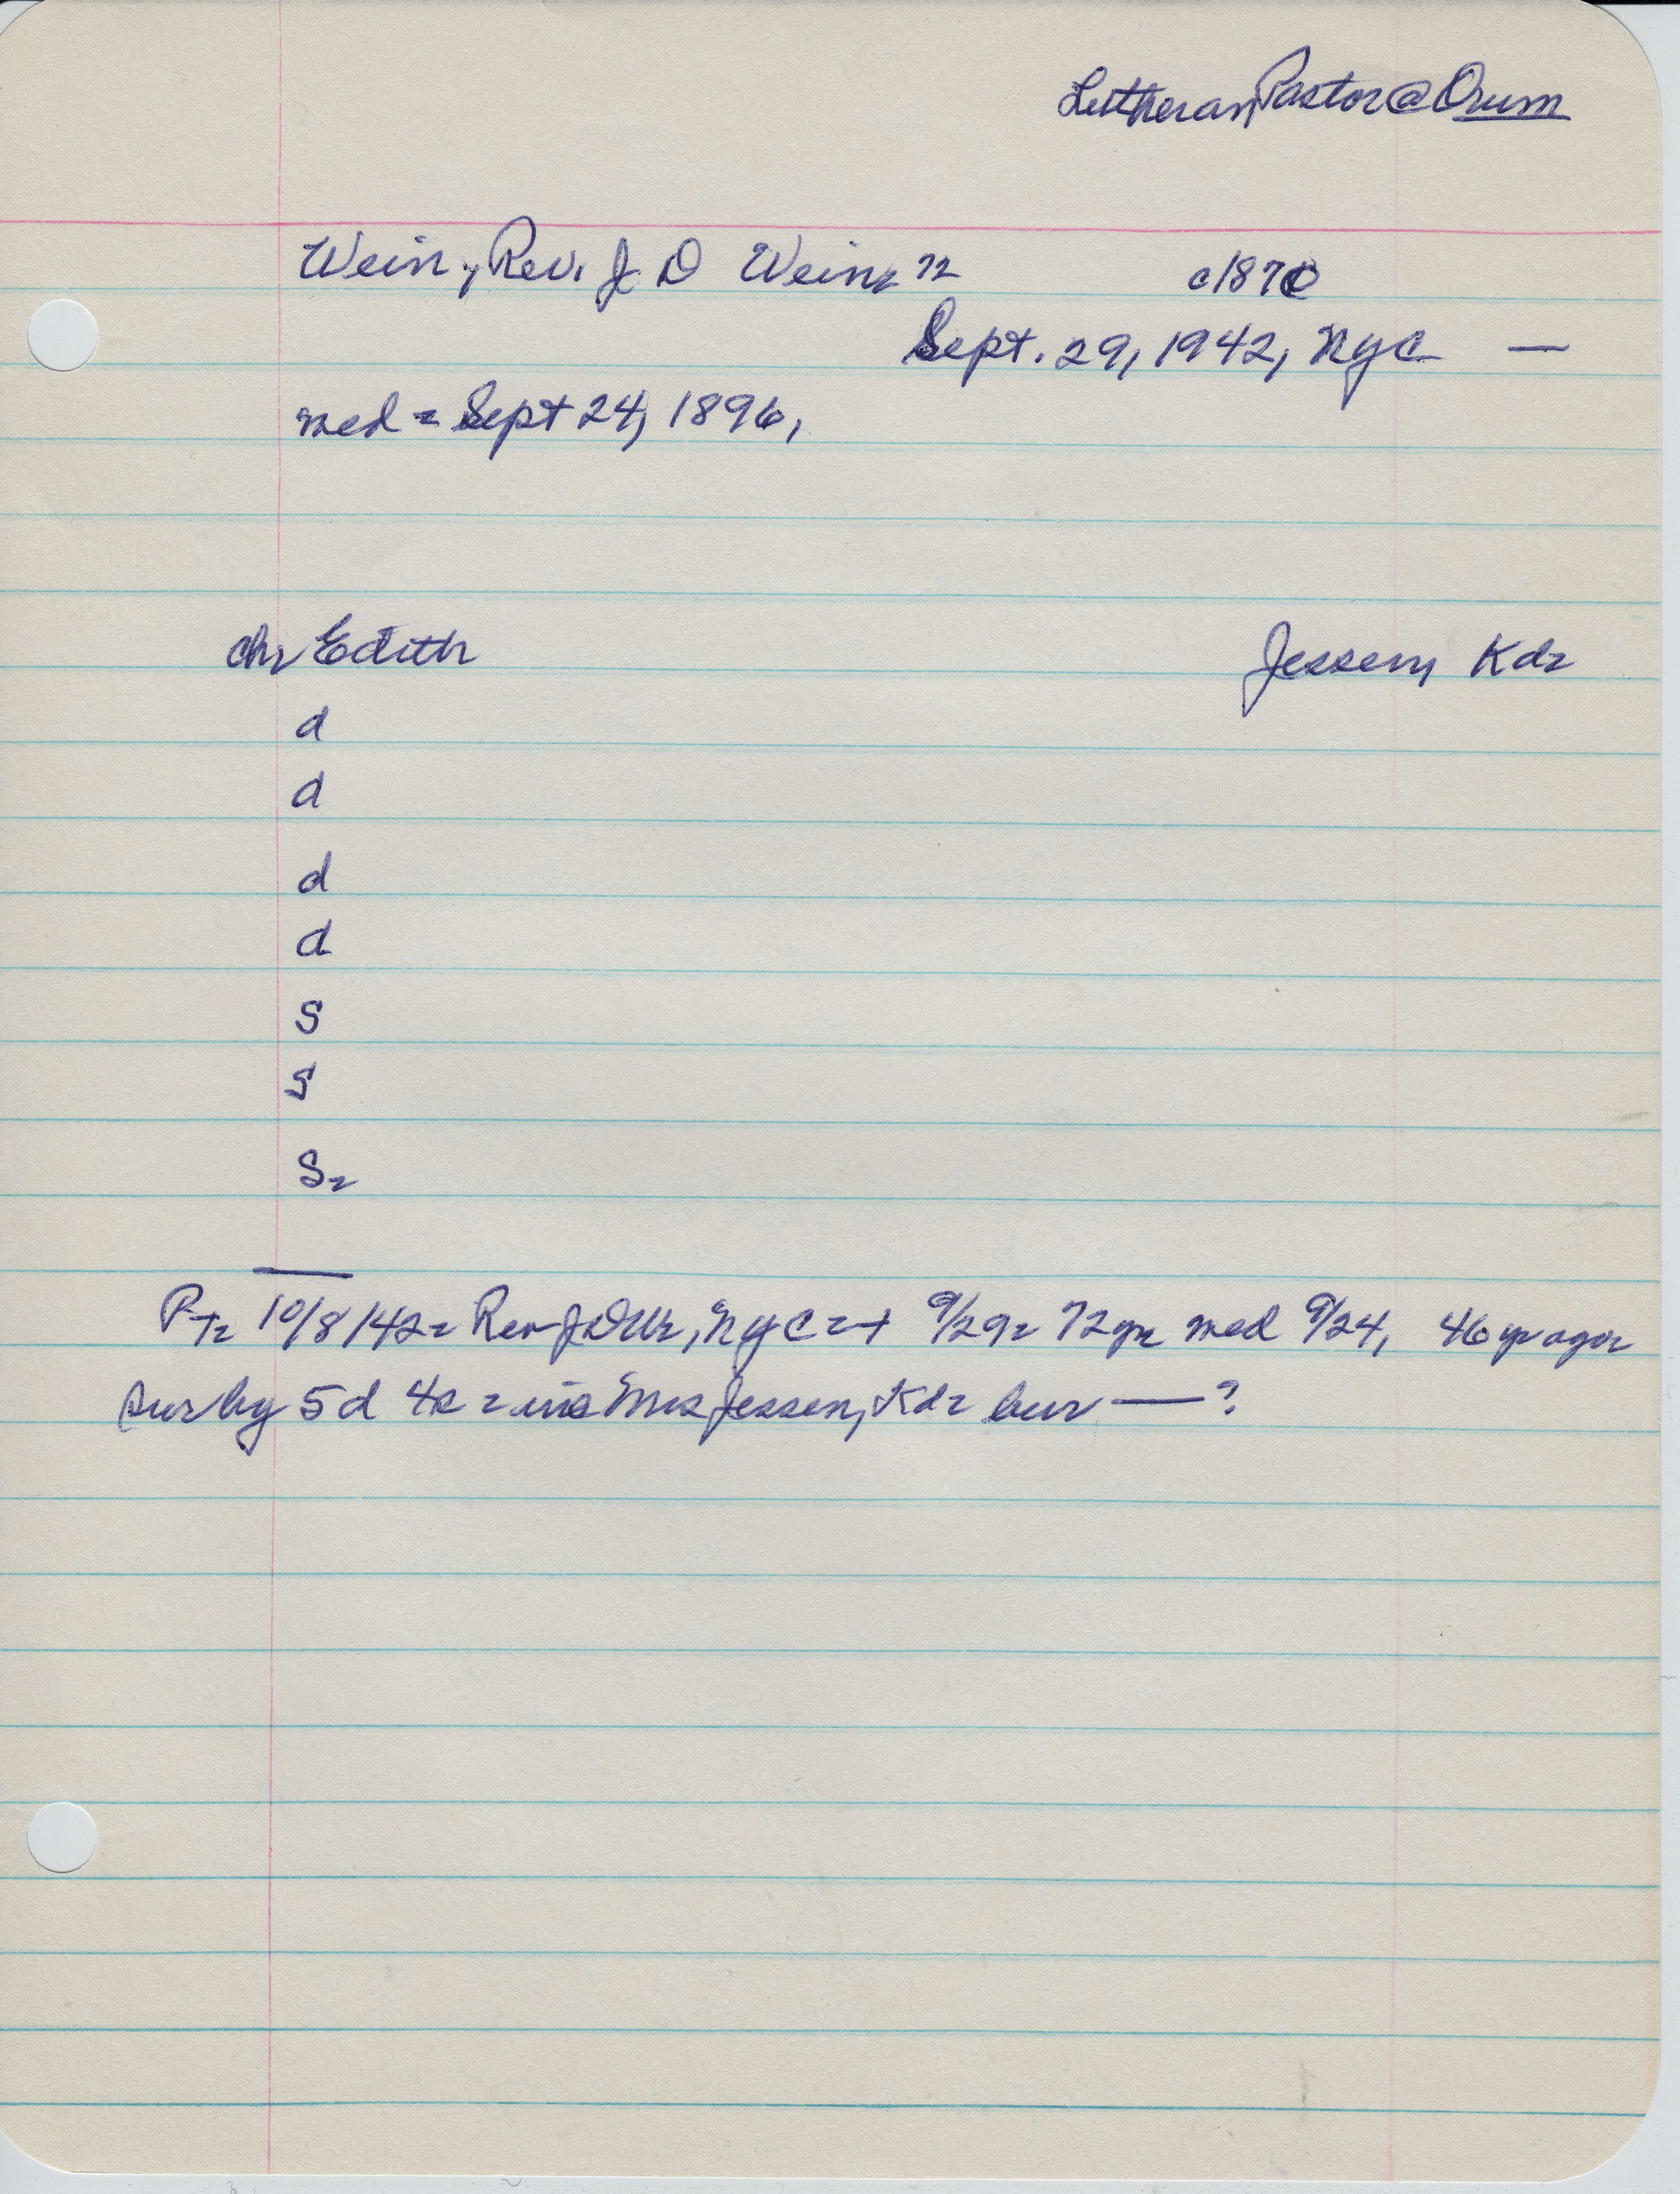 Lutheran Pastor @ Orum
Wein, Rev. J D Wein = 72 c1870
Sept. 29, 1942, NYC —
med = Sept 24, 1896,
ch= Edith Jessen, Kd=
d
d
d
d
S
S
S=
P-T= 10/8/42= Rev J D W=, NYC =+ 9/29= 72 yr med 9/24, 46 yr ago=
sur by 5d 4s = inc Mrs Jessen, Kd= bur —?